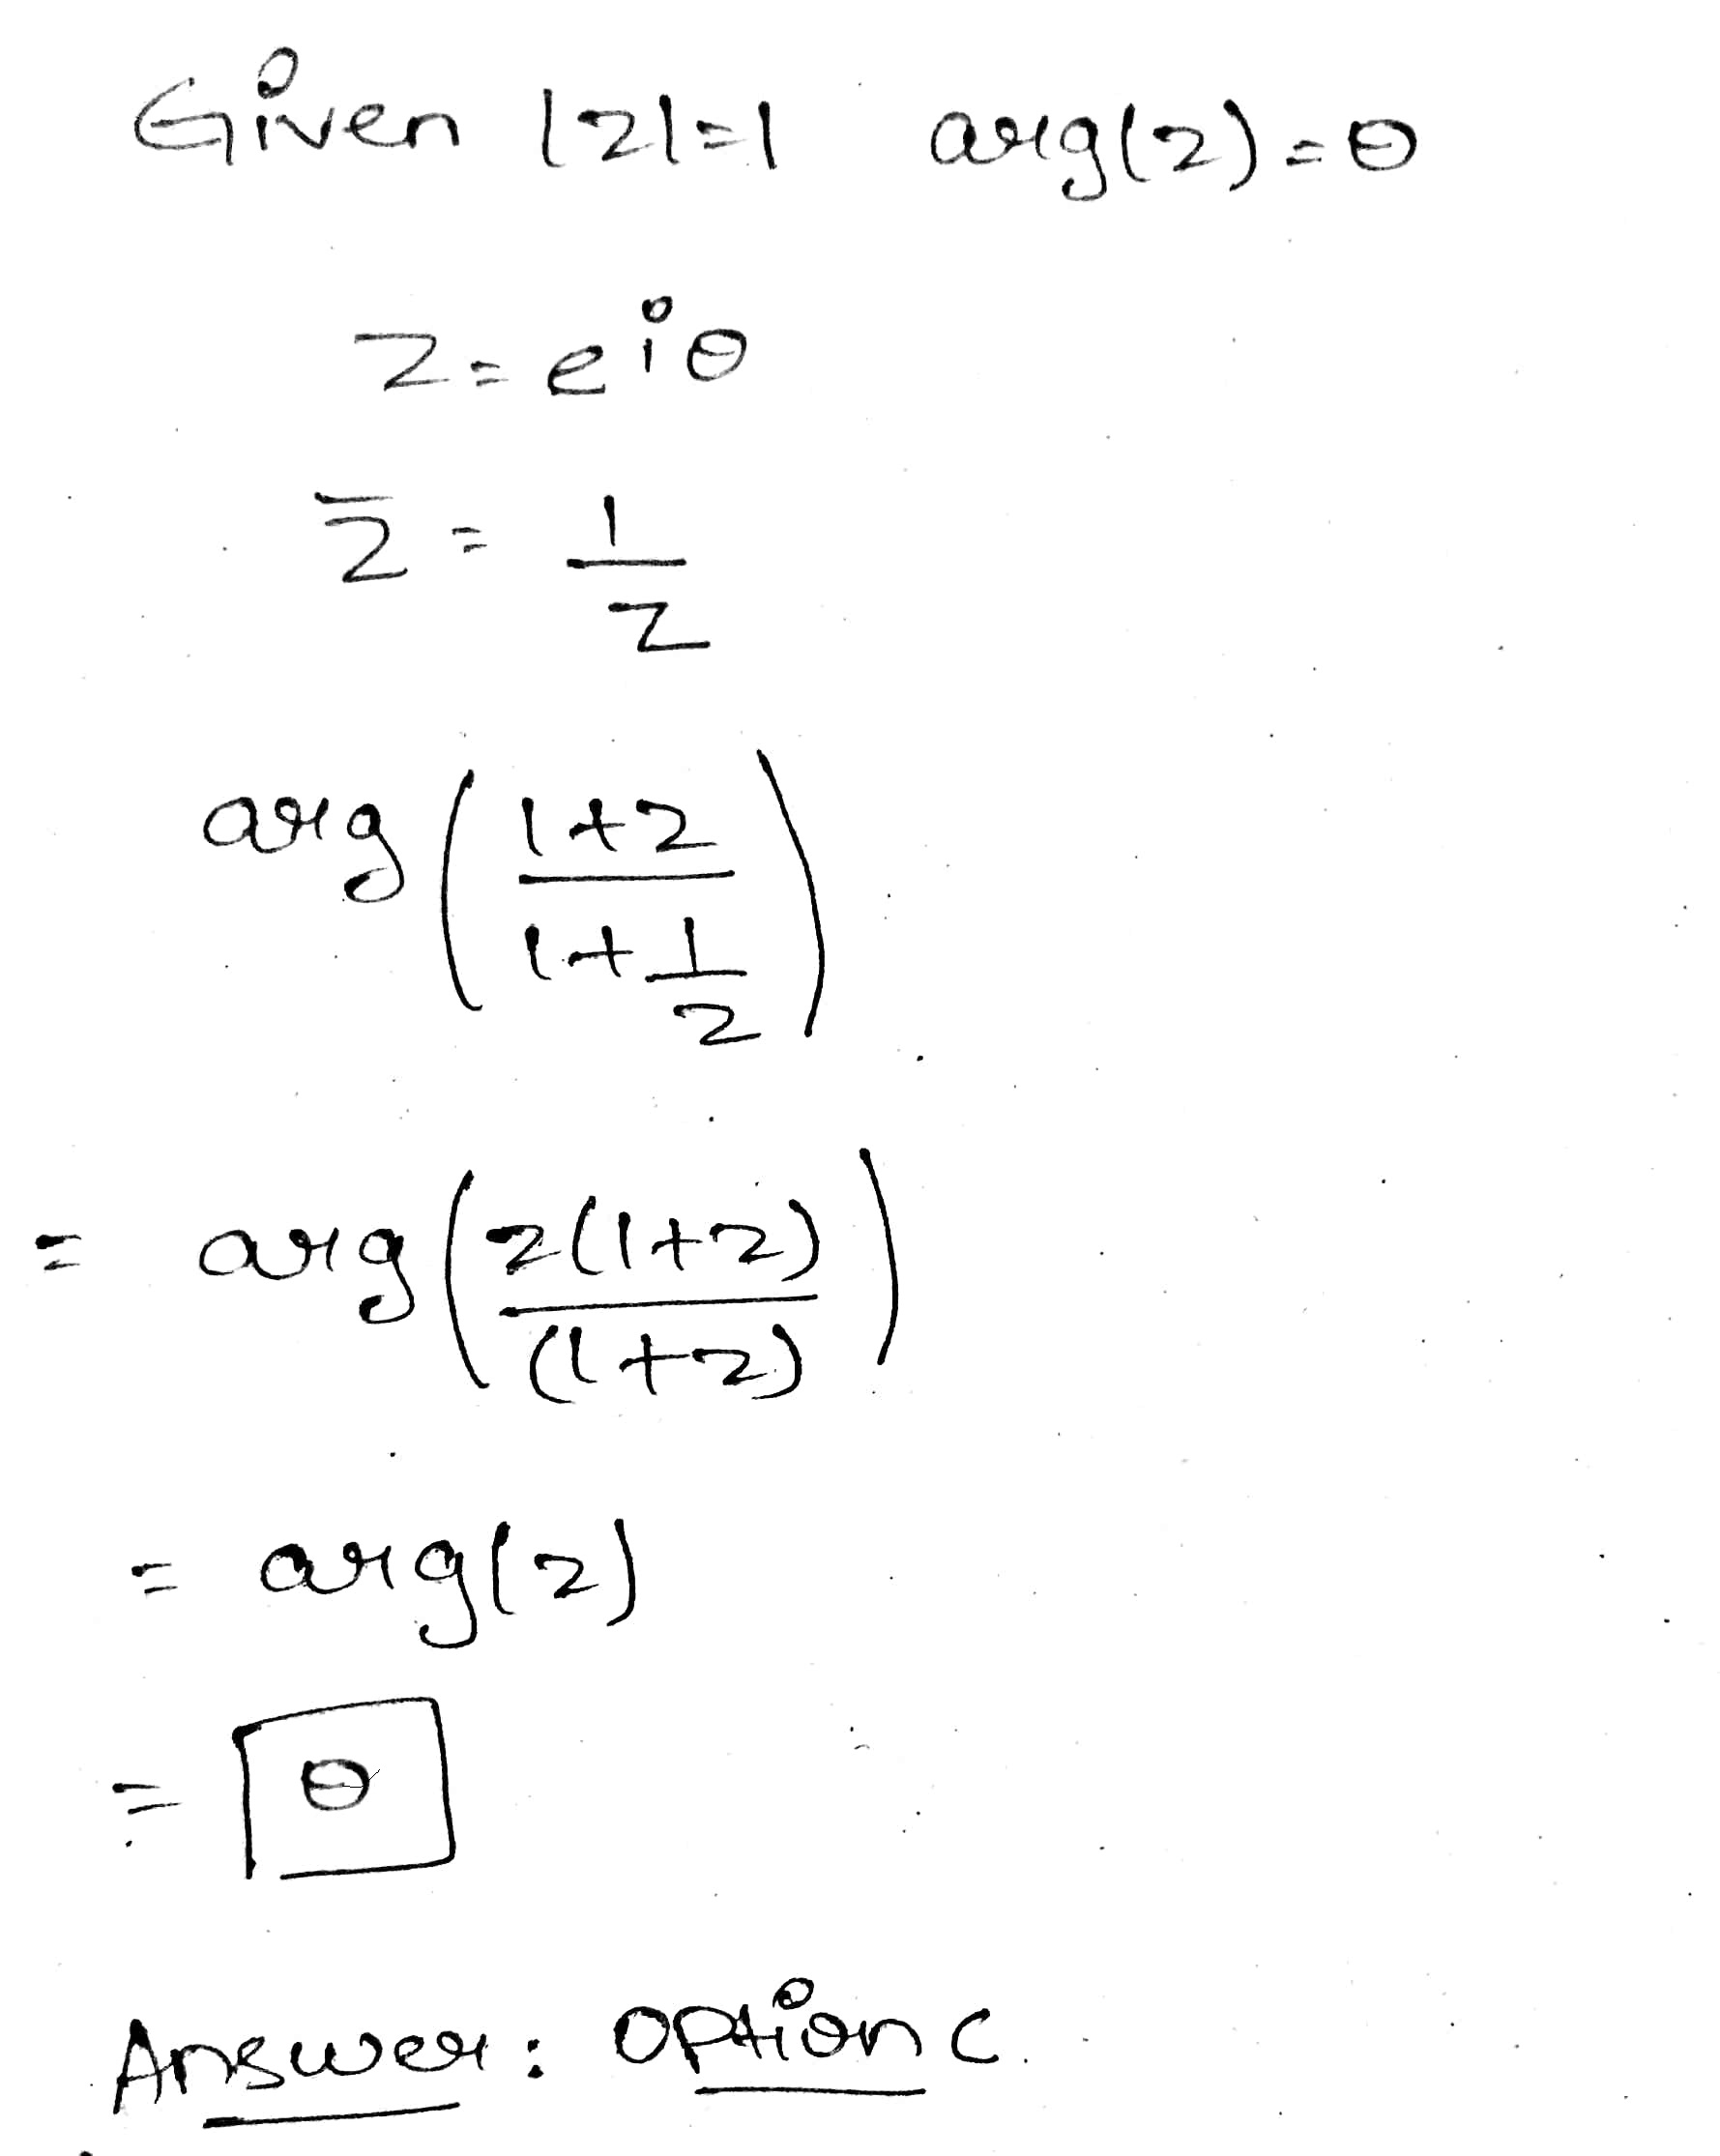 Given |z|=1 arg(z)=θ
z=e^{iθ}
z̄ = 1/z
arg((1+z)/(1+1/z))
= arg(z(1+z)/(1+z))
= arg(z)
= θ
Answer: Option c.